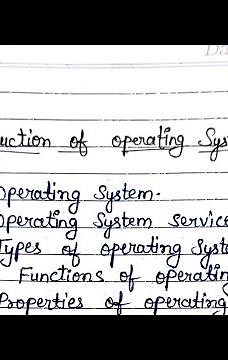 uction of operating Sys
Operating System.
Operating System service
Types of operating Syste
Functions of operatin
Properties of operating